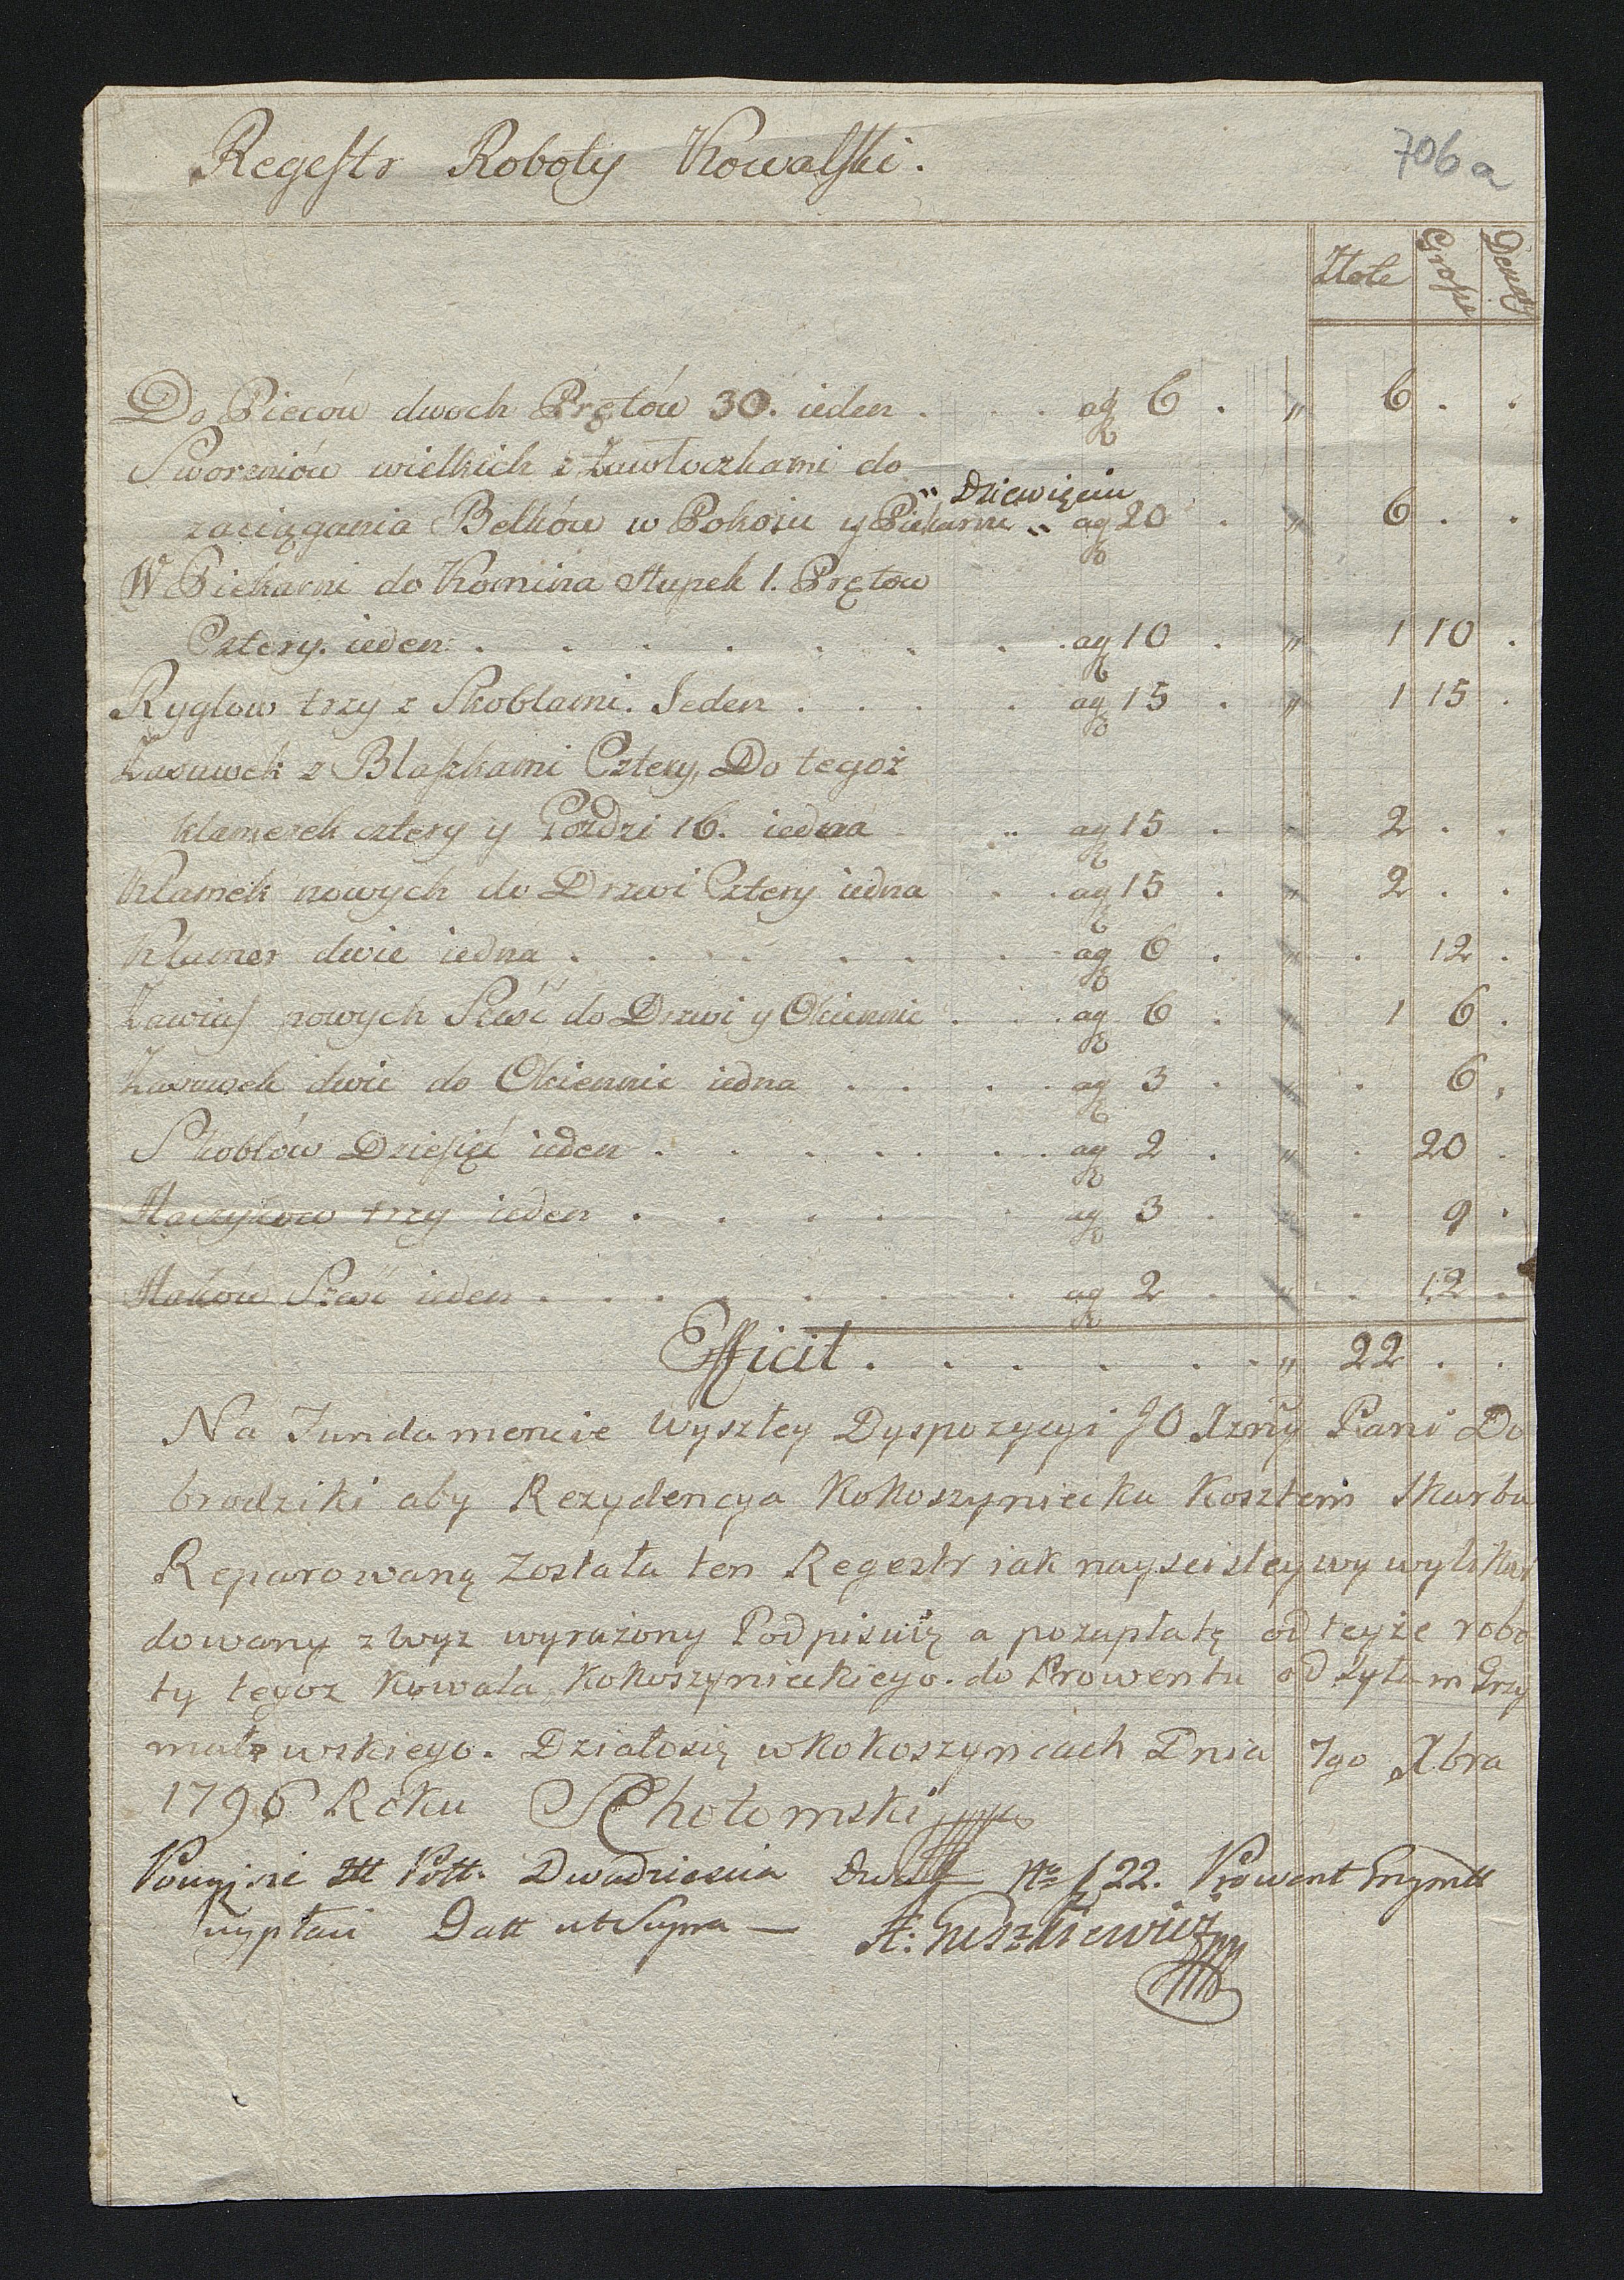 Regestr Roboty Kowalski.
706 a
Złote Grosze Denary
Do Pieców dwoch Prętów 30. ieden . . . ag 6 . " 6 . .
Sworzniów wielkich z Zawłoczkami do
" Dziewięciu
zaciągania Belków w Pokoiu y Piekarni " ag 20 . " 6 . .
W Piekarni do Komina Słupek 1. Prętow
Cztery. ieden . . . . . . . . ag 10 . " 1 10 .
Ryglow trzy z Skoblami. Jeden . . . . ag 15 . " 1 15 .
Zasuwek z Blaszkami Cztery, Do tegoż
klamerek cztery y Goździ 16. iedna " ag 15 . " 2 . .
Klamek nowych do Drzwi Cztery iedna . . ag 15 . " 2 . .
Klamer dwie iedna . . . . . . . ag 6 . " . 12 .
Zawias nowych Sześć do Drzwi y Okiennic . . ag 6 . " 1 6 .
Zasuwek dwie do Okiennic iedna . . . . ag 3 . " . 6 .
Skoblów Dziesięć ieden . . . . . . ag 2 . " . 20 .
Haczyków trzy ieden . . . . . ag 3 . " . 9 .
Haków Sześć ieden . . . . . . . ag 2 . " . 12 .
Efficit . . . . . . " 22 . .
Na Fundamencie wyszłey Dyspozycyi JO Xzny Pani Do
brodziki aby Rezydencya Kokoszyniecka Kosztem Skarbu
Reparowaną Została ten Regestr iak nayscisley wy wylikwi
dowany zwyz wyrażony Podpisuię a pozapłatę od teyże robo
ty tegoz Kowala Kokoszynieckiego. do Prowentu odsyłam Grzy
małowskiego. Działosię w Kokoszyńcach Dnia 7go Xbra
1796 Roku SChołomski
Złł Poll. Dwadziescia Dwa No f 22. Prowent Grzymłł
wypłaci Datt ut Supra —